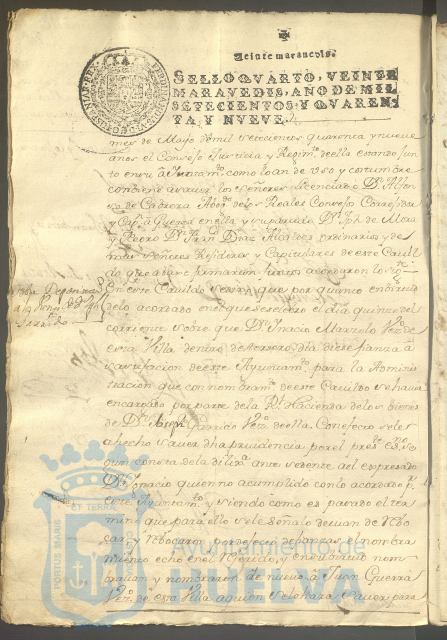 Veinte maravedis.
SELLO QVARTO, VEINTE
MARAVEDIS, AÑO DE MIL
SETECIENTOS Y QVAREN-
TA Y NVEVE.
mes de Mayo de mil setecientos quarenta y nueve
años el Consejo Justicia y Regim.to de ella estando jun
to en su Ayuntam.to como lo an de uso y costumbre
conbiene a saver los señores licenciado D.n Alfon
so de Cabrera Abog.do de los Reales Consejos Correxidor
y Cap.n a Guerra en ella y su partido D.n Jph de Mora
y Pedro D.n Juan Diaz Alcaldes ordinarios y de
mas señores Rejidores y Capitulares de este Cavil
do que aqui firmaran juntos acordaron lo sig.te
En este Cavildo se dijo que por quanto en birtud
de lo acordado en el que se selebro el dia quinze del
corriente sobre que D.n Ygnacio Marzelo Vez.o de
esta Villa dentro de tersero dia diese fianza a
satisfacion de este Ayuntam.to para la Adminis
tracion que con nombram.to de este Cavildo se havia
encargado por parte de la R.l Hacienda de los bienes
de D.n Joseph Garrido Vez.o de ella Con efecto se les
a hecho saver dha providencia por el pres.te es.no se
gun consta de la dilix.a antesedente al expresado
D.n Ygnacio quien no a cumplido con lo acordado p.r
este Ayuntam.to y siendo como es pasado el ter
mino que para ello se le señalo devian de Rebo
car y Rebocaron por defecto de fianzas el nombra
miento echo en el Referido, y en su birtud nom
braban y nombraron de nuevo a Juan Guerra
Vez.o de esta Villa a quien se le hara saver para
PORTUS MARIS
ET TERRAE
Ayuntamiento de
HUELVA